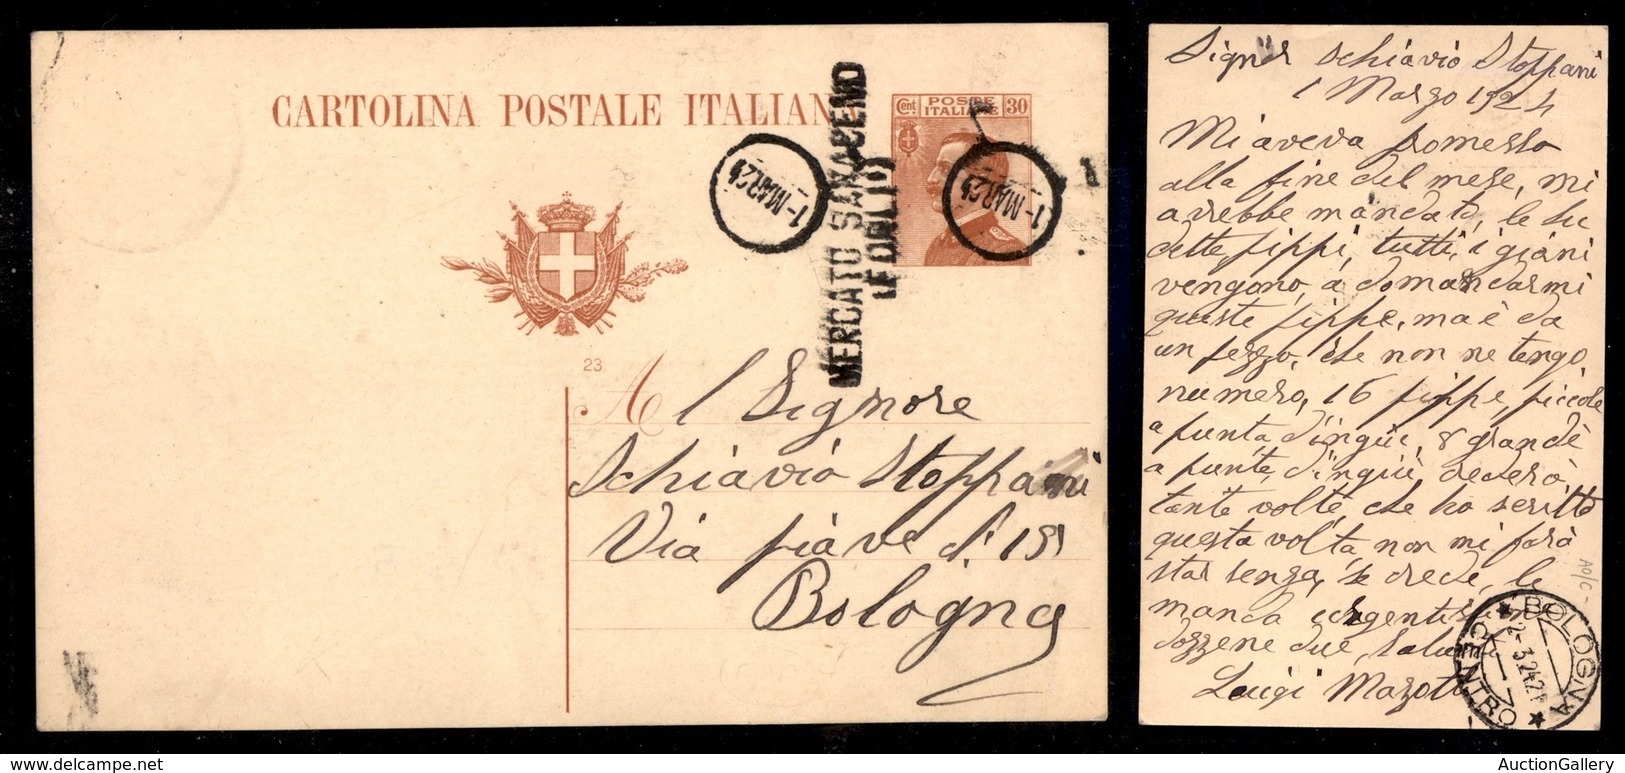 CARTOLINA POSTALE ITALIAN
Cent POSTE ITALIANE 30
1-MAR24
1-MAR24
MERCATO SARACENO
(FORLI')
23
Al Signore
Schiavio Stoppani
Via piave di 15
Bologna
Signor Schiavio Stoppani
1 Marzo 1924
Mi aveva promesso
alla fine del mese, mi
avrebbe mandato, le su
dette pippi, tutti, i giorni
vengono, a domandarmi
queste pippe, ma è da
un pezzo, che non ne tengo,
numero, 16 pippe, piccole
a punta, d'ingiù, 8 grande
a punte, d'ingiù, vederà,
tante volte, che ho scritto
questa volta, non mi farà
star senza, se crede, le
manda urgentissime
dozzene due, saluti
Luigi Mazotti
A0/C
BOLOGNA CENTRO
2-3.24.21
AuctionGallery